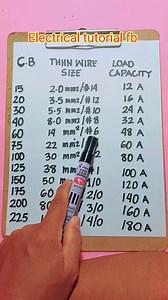 Electrical tutorial fb
C.B THHN WIRE SIZE LOAD CAPACITY
15 2.0 mm²/#14 12 A
20 3.5 mm²/#12 16 A
30 5.5 mm²/#10 24 A
40 8.0 mm²/#8 32 A
60 14 mm²/#6 48 A
75 22 mm² 60 A
100 30 mm² 2 80 A
125 38 mm 1 100 A
150 50 m 1/0 120 A
175 60 2/0 140 A
200 3/0 160 A
225 4/0 180 A